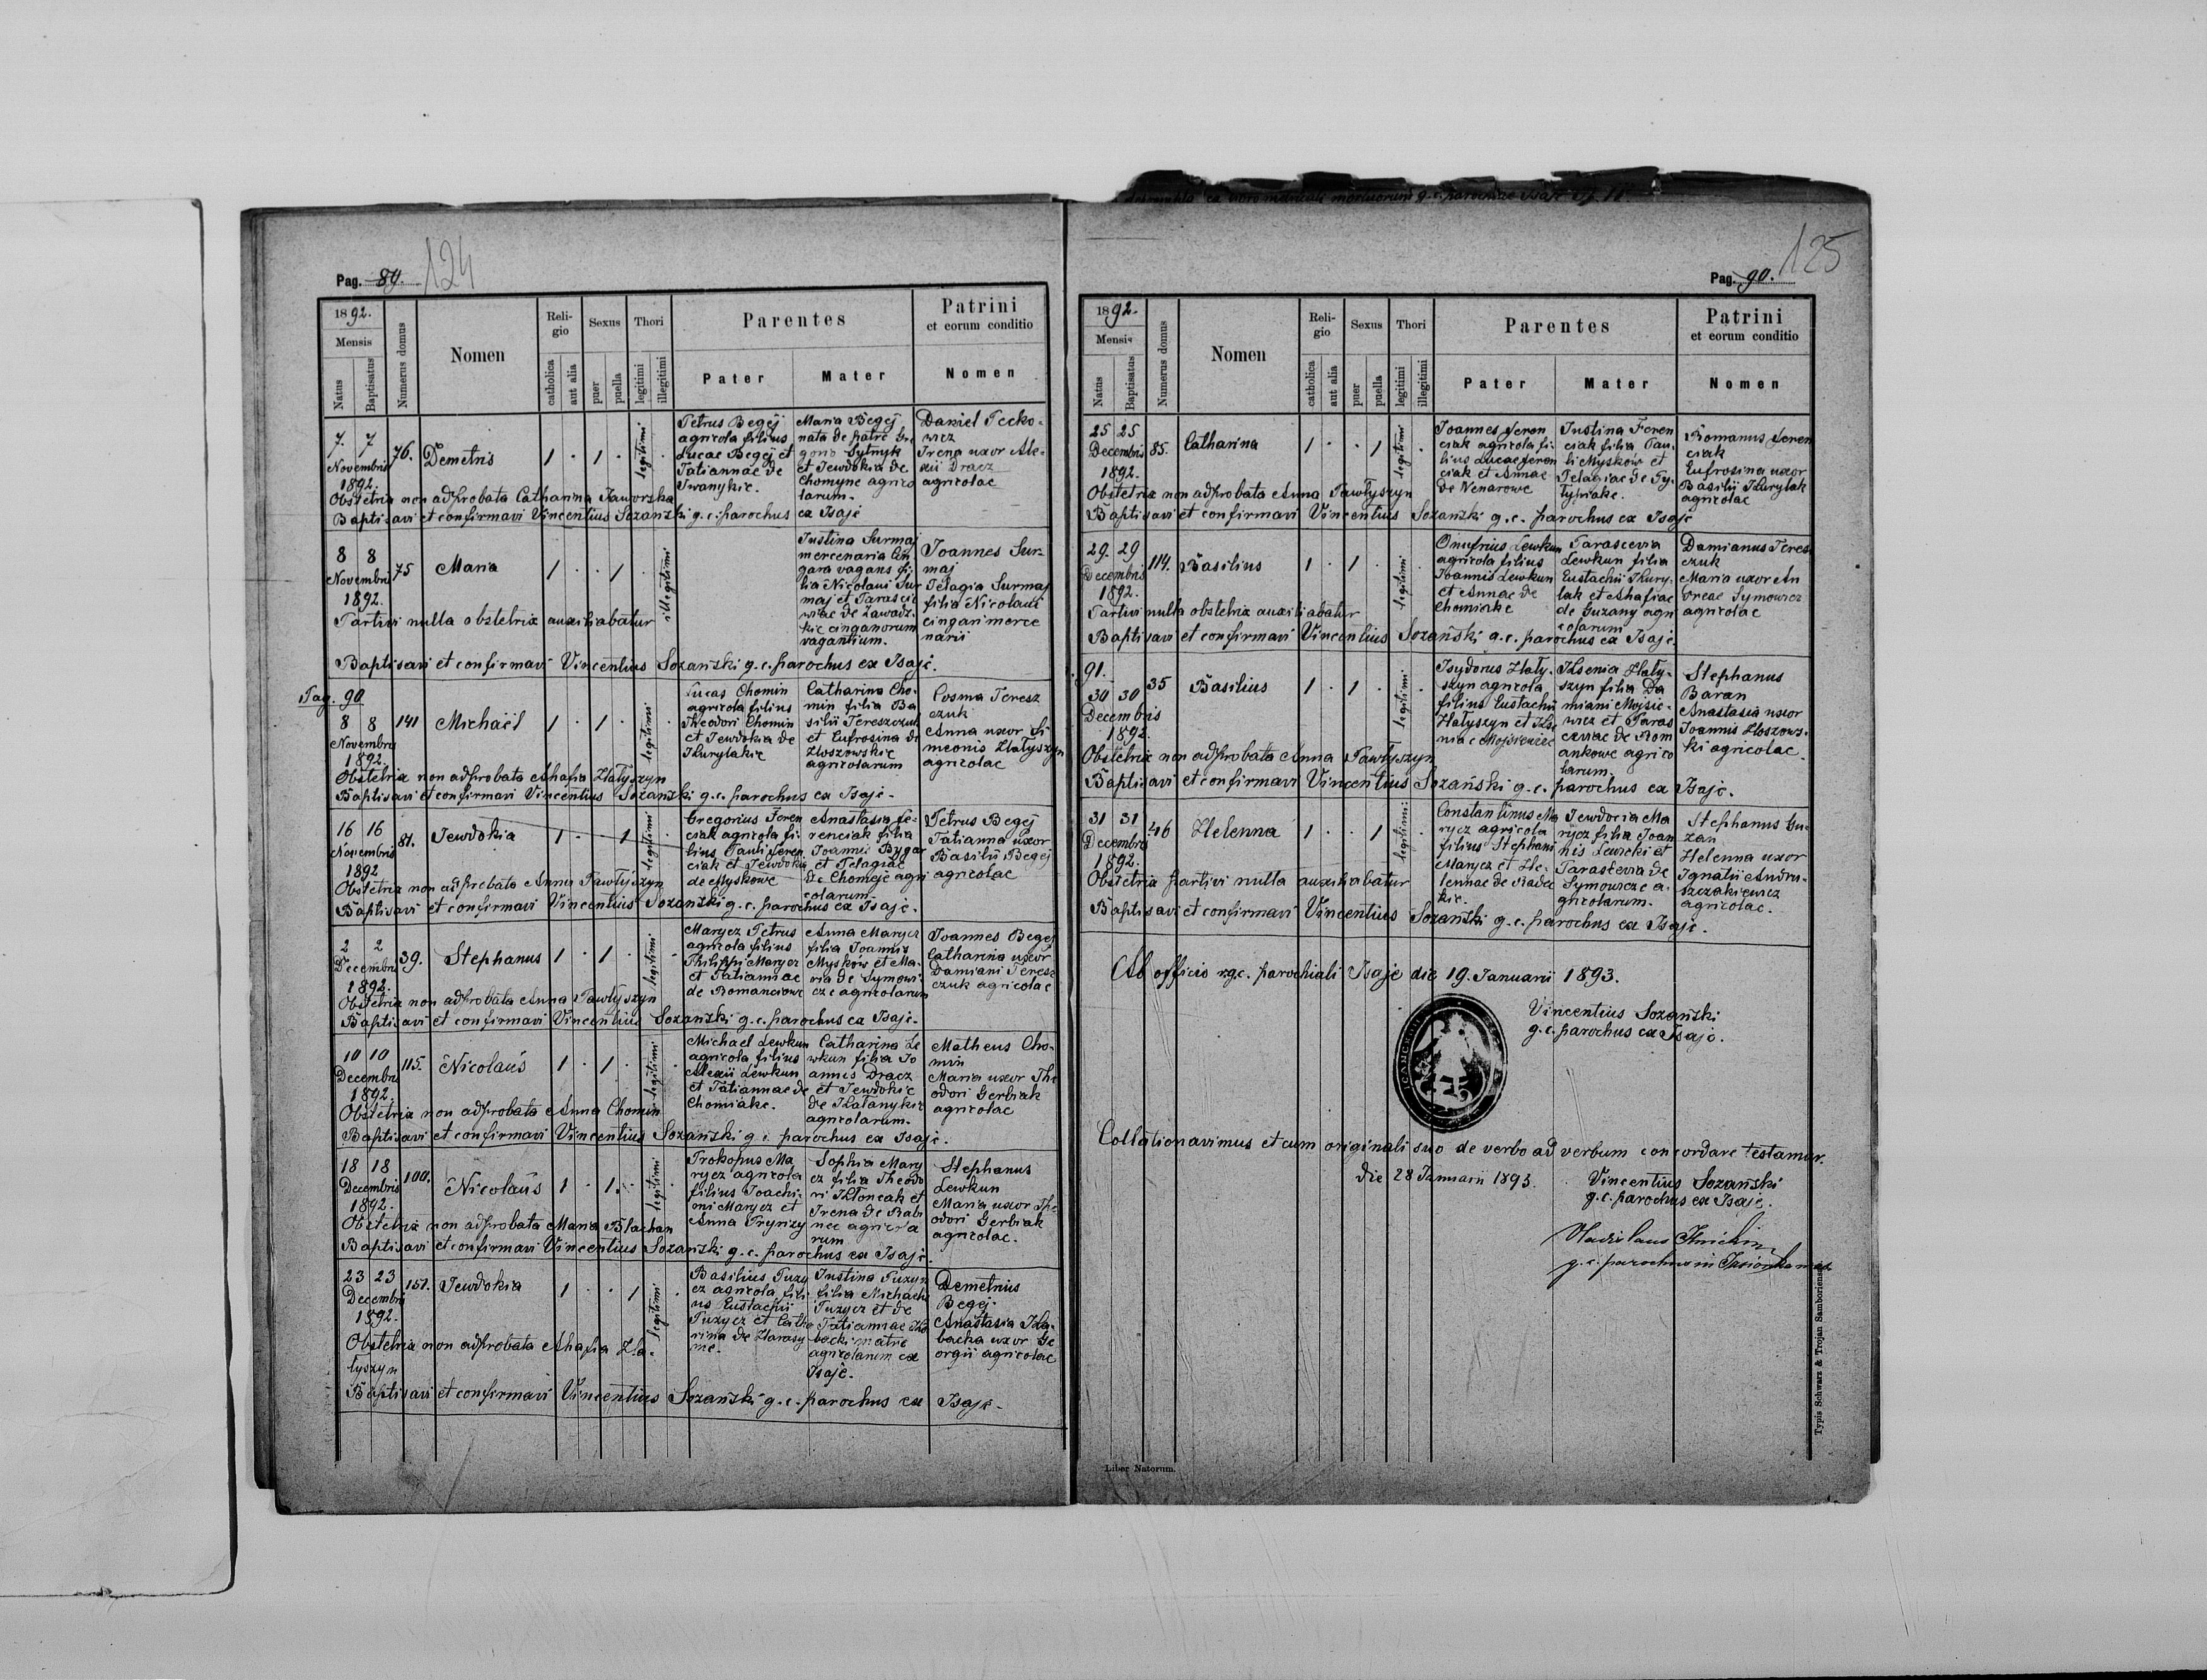 Pag. 89. 124
1892.
Mensis
Natus
Baptisatus
Numerus domus
Nomen
Reli-
gio
catholica
aut alia
Sexus
puer
puella
Thori
legitimi
illegitimi
Parentes
Pater
Mater
Patrini
et eorum conditio
Nomen
7. 7
Novembris
1892.
76.
Demetris
1 . 1 .
legitimi
Petrus Begej
agricola filius
Lucae Begej et
Tatiannae de
Iwanykie.
Maria Begej
nata de patre Gre
gorio Sytnyk
et Jewdokia de
Chomyne agrico
larum.
Daniel Pecko-
wicz
Irena uxor Ale-
xii Dracz
agricolae
Obstetrix non adprobata Catharina Jaworska
Baptisavi et confirmavi Vincentius Sozański g. c. parochus ex Isaje
8 8
Novembris
1892.
75
Maria
1 . . 1
illegitimi
Justina Surmaj
mercenaria Cin
gara vagans fi-
lia Nicolaui Sur
maj et Parasce
wiae de Zawadz-
kie cinganorum
vagantium.
Joannes Sur-
maj
Pelagia Surmaj
filia Nicolaui
cingari merce
narii
Partui nulla obstetrix auxiliabatur
Baptisavi et confirmavi Vincentius Sozański g. c. parochus ex Isaje.
Pag. 90
8 8
Novembris
1892.
141
Michaël
1 . 1 .
legitimi
Lucas Chomin
agricola filius
Theodori Chomin
et Jewdokia de
Kurylakie
Catharina Cho-
min filia Ba
silii Tereszczuk
et Eufrosina de
Kloszowskie
agricolarum
Cosma Teresz
czuk
Anna uxor Si
meonis Hałyszyn
agricolae
Obstetrix non adprobata Ahafia Hałyszyn
Baptisavi et confirmavi Vincentius Sozański g. c. parochus ex Isaje.
16 16
Novembris
1892
81.
Jewdokia
1 . . 1
legitimi
Gregorius Feren
ciak agricola fi-
lius Pauli Feren
ciak et Jewdokia
de Myskowe
Anastasia Fe-
renciak filia
Joannis Bygar
et Pelagiae
de Chomeje agri
colarum.
Petrus Begej
Tatianna uxor
Basilii Begej
agricolae
Obstetrix non adprobata Anna Pawłyszyn
Baptisavi et confirmavi Vincentius Sozański g. c. parochus ex Isaje.
2 2
Decembris
1892.
39.
Stephanus
1 . 1 .
legitimi
Marycz Petrus
agricola filius
Philippi Marycz
et Tatiannae
de Romanciowe
Anna Marycz
filia Joannis
Myskow et Ma-
ria de Symowi-
cze agricolarum
Joannes Begej
Catharina uxor
Damiani Teresz
czuk agricolae
Obstetrix non adprobata Anna Pawłyszyn
Baptisavi et confirmavi Vincentius Sozański g. c. parochus ex Isaje.
10 10
Decembris
1892.
115.
Nicolaus
1 . 1 .
legitimi
Michael Lewkun
agricola filius
Alexii Lewkun
et Tatiannae de
Chomiake.
Catharina Le
wkun filia Jo
annis Dracz
et Jewdokie
de Hatanykie
agricolarum.
Matheus Cho-
min
Maria uxor The
odori Gerbiak
agricolae
Obstetrix non adprobata Anna Chomin
Baptisavi et confirmavi Vincentius Sozański g. c. parochus ex Isaje.
18 18
Decembris
1892.
100.
Nicolaus
1 . 1 .
legitimi
Prokopus Ma
rycz agricola
filius Joachi-
mi Marycz et
Anna Pryrizy
Sophia Mary
cz filia Theodo
ri Kłonçak et
Irena de Babi
nec agricola
rum
Stephanus
Lewkun
Maria uxor The
odori Gerbiak
agricolae.
Obstetrix non adprobata Maria Blachan
Baptisavi et confirmavi Vincentius Sozański g. c. parochus ex Isaje.
23 23
Decembris
1892.
151.
Jewdokia
1 . . 1
legitimi
Basilius Puzy
cz agricola fili-
us Eustachii
Puzycz et Catha
rina de Harasy
me.
Justina Puzycz
filia Michaelis
Puzycz et de
Tatianna Kha
backi matre
agricolarum ex
Isaje.
Demetrius
Begej
Anastasia Kha-
backa uxor Ge
orgii agricolae
Obstetrix non adprobata Ahafia Ha-
łyszyn
Baptisavi et confirmavi Vincentius Sozański g. c. parochus ex Isaje.
Pag. 90. 125
1892.
Mensis
Natus
Baptisatus
Numerus domus
Nomen
Reli-
gio
catholica
aut alia
Sexus
puer
puella
Thori
legitimi
illegitimi
Parentes
Pater
Mater
Patrini
et eorum conditio
Nomen
25 25
Decembris
1892.
85.
Catharina
1 . . 1
legitimi
Joannes Feren
ciak agricola fi-
lius Lucae Feren
ciak et Annae
de Nenarowe
Justina Feren
ciak filia Pau-
li Myskow et
Pelagiae de Hy-
tyniake.
Romanus Feren
ciak
Eufrosina uxor
Basilii Kurylak
agricolae
Obstetrix non adprobata Anna Pawłyszyn
Baptisavi et confirmavi Vincentius Sozański g. c. parochus ex Isaje
29. 29
Decembris
1892.
114.
Basilius
1 . 1 .
legitimi
Onufrius Lewkun
agricola filius
Joannis Lewkun
et Annae de
Chomiake
Parascevia
Lewkun filia
Eustachii Kury-
lak et Ahafiae
de Guzany agri
colarum
Damianus Teres
czuk
Maria uxor An
dreae Symowicz
agricolae
Partui nulla obstetrix auxiliabatur
Baptisavi et confirmavi Vincentius Sozański g. c. parochus ex Isaje.
91.
30 30
Decembris
1892
35
Basilius
1 . 1 .
legitimi
Isydorus Hały-
szyn agricola
filius Eustachii
Hałyszyn et Kse
nia e Mojsiewicze
Ksenia Hały-
szyn filia Da
miani Mojsie-
wicz et Paras
ceviae de Rom
ankowe agrico
larum.
Stephanus
Baran
Anastasia uxor
Joannis Kloszows-
ki agricolae.
Obstetrix non adprobata Anna Pawłyszyn
Baptisavi et confirmavi Vincentius Sozański g. c. parochus ex Isaje.
31 31
Decembris
1892.
46
Helenna
1 . . 1
legitimi
Constantinus Ma
rycz agricola
filius Stephani
Marycz et He-
lennae de Radec
kie.
Jewdocia Ma
rycz filia Joan
nis Lewicki et
Parascevia de
Symowicze a-
gricolarum.
Stephanus Gu-
zan
Helenna uxor
Ignatii Andru-
szczakiewicz
agricolae.
Obstetrix partui nulla auxiliabatur
Baptisavi et confirmavi Vincentius Sozański g. c. parochus ex Isaje.
Ab officio g. c. parochiali Isaje die 19. Januarii 1893.
Vincentius Sozański
g. c. parochus ex Isaje.
Collationavimus et cum originali suo de verbo ad verbum concordare testamur.
die 28 Januarii 1893.
Vincentius Sozański
g. c. parochus ex Isaje.
Vladislaus
g. c. parochus in
Liber Natorum.
Typis Schwarz & Trojan Samboriensis.